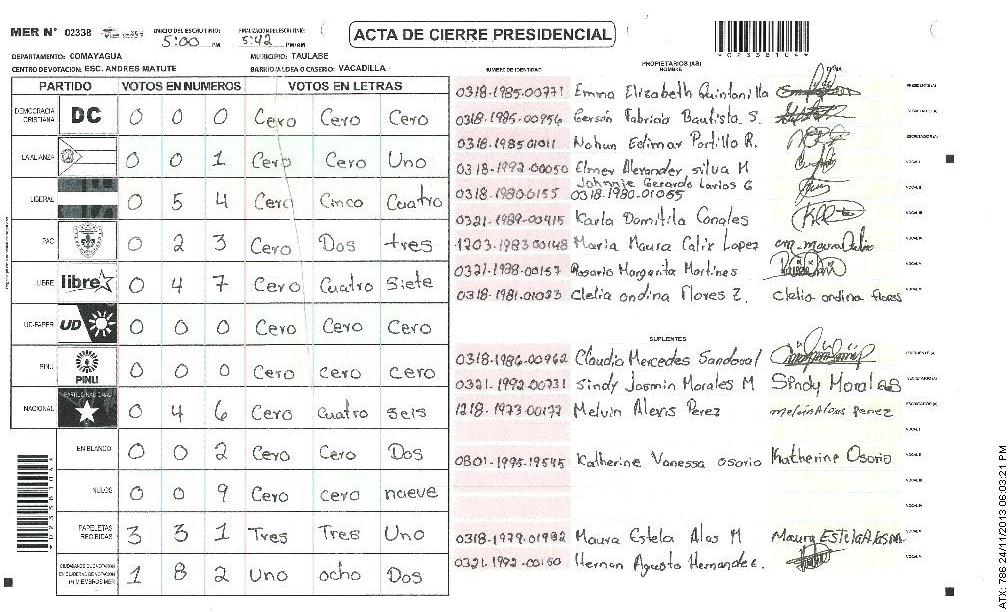 MER N° 02338
INICIO DEL ESCRUTINIO: 5:00 PM
FINALIZACION DEL ESCRUTINIO: 5:42 PM/AM
ACTA DE CIERRE PRESIDENCIAL
DEPARTAMENTO: COMAYAGUA MUNICIPIO: TAULABE
CENTRO DE VOTACION: ESC. ANDRES MATUTE BARRIO/ALDEA O CASERIO: VACADILLA
PARTIDO VOTOS EN NUMEROS VOTOS EN LETRAS
DEMOCRACIA CRISTIANA DC 0 0 0 Cero Cero Cero
LA ALIANZA 0 0 1 Cero Cero Uno
LIBERAL 0 5 4 Cero Cinco Cuatro
PAC 0 2 3 Cero Dos tres
LIBRE libre 0 4 7 Cero Cuatro Siete
UD-FAPER UD 0 0 0 Cero Cero Cero
PINU PINU 0 0 0 Cero cero cero
NACIONAL PARTIDO NACIONAL 0 4 6 Cero cuatro seis
EN BLANCO 0 0 2 Cero Cero Dos
NULOS 0 0 9 Cero cero nueve
PAPELETAS RECIBIDAS 3 3 1 Tres Tres Uno
1 8 2 Uno ocho Dos
PROPIETARIOS (AS)
NUMERO DE IDENTIDAD NOMBRE FIRMA
0318-1985-00771 Emma Elizabeth Quintanilla
0318-1985-00956 Gerson Fabricio Bautista S.
0318-1985-01011 Nohun Edimar Portillo R.
0318-1992-00050 Elmer Alexander silva M
0318-1980-0155 Johnnie Gerardo Larios G
0318-1980-01055
0321-1989-00415 Karla Domitila Canales
1203-1983-00148 Maria Maura Calix Lopez
0321-1988-00157 Rosario Margarita Martines
0318-1981-01023 Clelia ondina Flores Z. Clelia ondina flores
SUPLENTES
0318-1986-00962 Claudia Mercedes Sandoval
0321-1992-00731 Sindy Jasmin Morales M Sindy Morales
1218-1973-00177 Melvin Alexis Perez melvin Alexis perez
0801-1995-19545 Katherine Vanessa osorio Katherine Osorio
0318-1979-01982 Maura Estela Alas M
0321-1972-00150 Hernan Agusto Hernandez.
ATX: 786 24/11/2013 06:03:21 PM